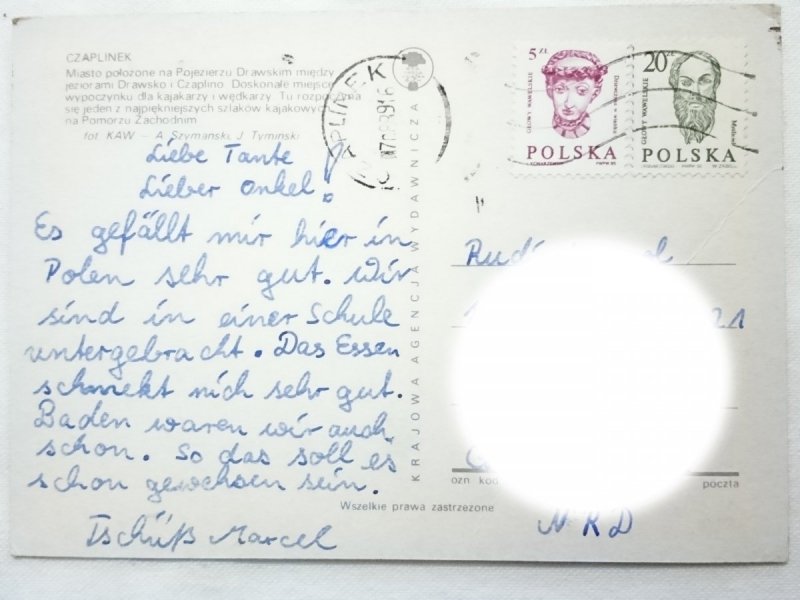 CZAPLINEK
Miasto położone na Pojezierzu Drawskim między
jeziorami Drawsko i Czaplino. Doskonałe miejsce
wypoczynku dla kajakarzy i wędkarzy. Tu rozpoczyna
się jeden z najpiękniejszych szlaków kajakowych
na Pomorzu Zachodnim
fot. KAW — A. Szymański, J. Tymiński
Liebe Tante
Lieber Onkel!
Es gefällt mir hier in
Polen sehr gut. Wir
sind in einer Schule
untergebracht. Das Essen
schmekt mich sehr gut.
Baden waren wir auch
schon. So das soll es
schon gewehsen sein.
Tschüß Marcel
KRAJOWA AGENCJA WYDAWNICZA
5 ZŁ
GŁOWY WAWELSKIE
POLSKA
20 ZŁ
GŁOWY WAWELSKIE
POLSKA
21
ozn. kod
poczta
NRD
Wszelkie prawa zastrzeżone